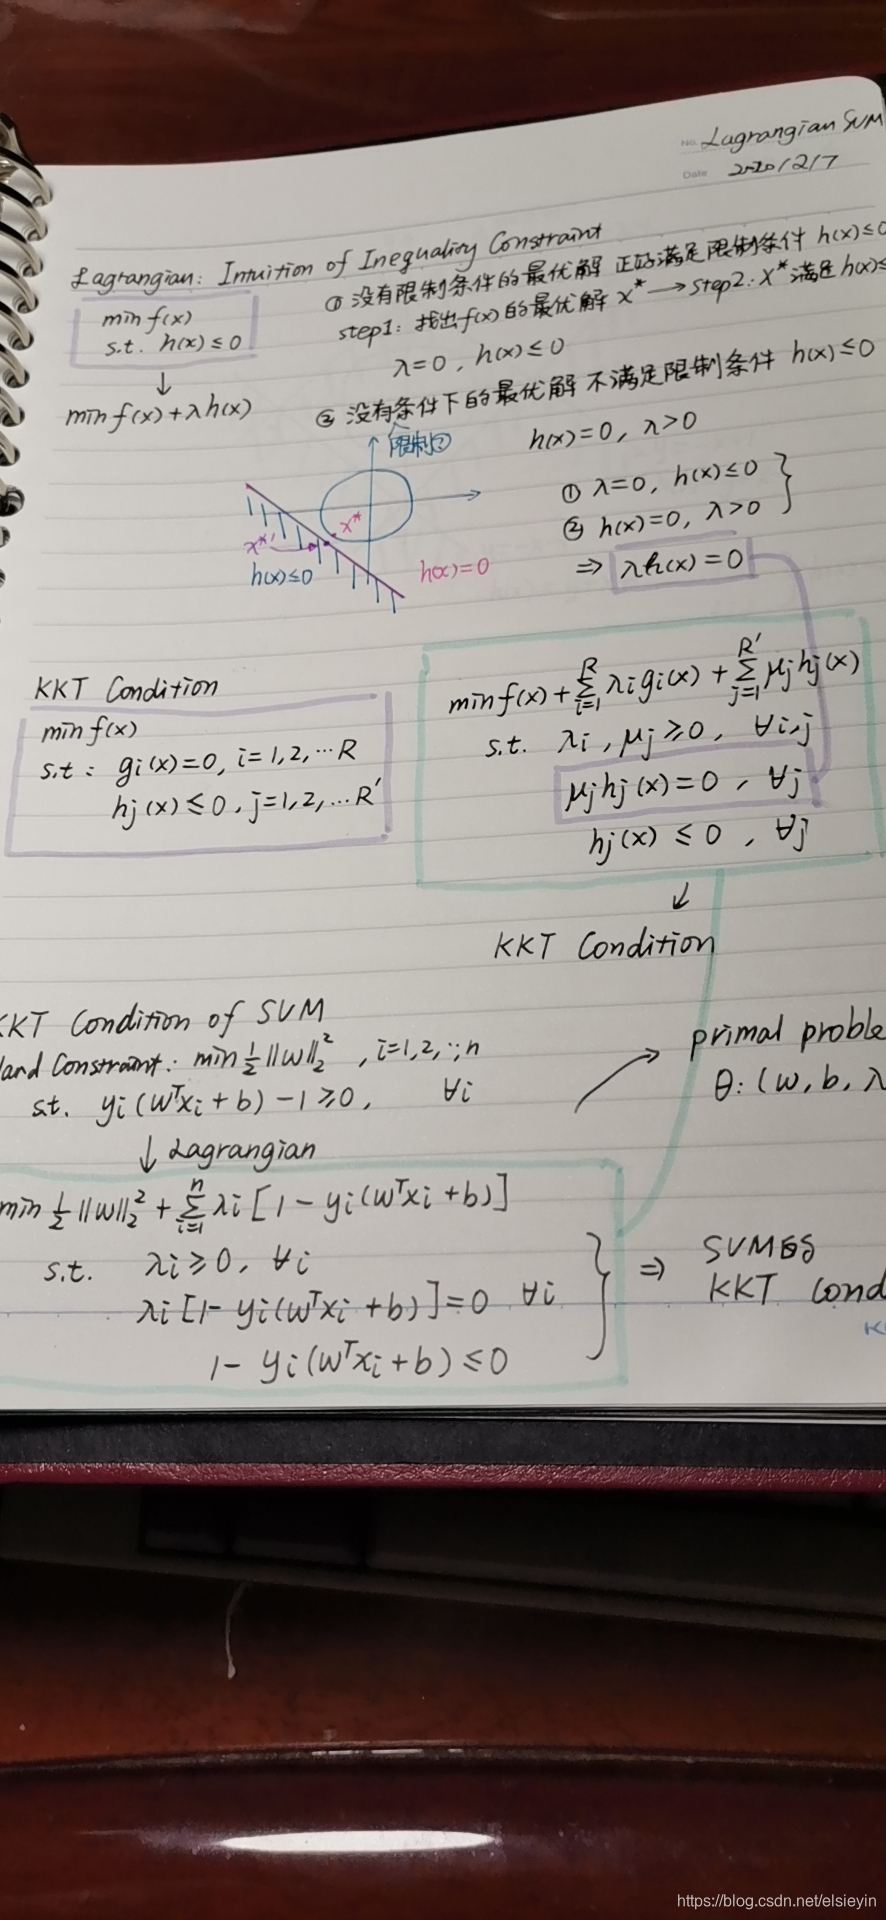 No. Lagrangian SVM
Date 2020/2/7
Lagrangian: Intuition of Inequality Constraint
min f(x)
s.t. h(x) ≤ 0
↓
min f(x) + λh(x)
① 没有限制条件的最优解 正好满足限制条件 h(x) ≤ 0
step1: 找出f(x)的最优解 x* → step2: x* 满足 h(x) ≤
λ=0, h(x) ≤ 0
② 没有条件下的最优解 不满足限制条件 h(x) ≤ 0
限制
h(x)=0, λ>0
① λ=0, h(x) ≤ 0
② h(x)=0, λ>0
⇒ λh(x) = 0
x*
x*'
h(x) ≤ 0
h(x) = 0
KKT Condition
min f(x)
s.t: gi(x)=0, i=1,2,…R
hj(x) ≤ 0, j=1,2,…R'
min f(x) + Σ_{i=1}^{R} λi gi(x) + Σ_{j=1}^{R'} μj hj(x)
s.t. λi, μj ≥ 0, ∀i,j
μj hj(x) = 0, ∀j
hj(x) ≤ 0, ∀j
↓
KKT Condition
KKT Condition of SVM
Hard Constraint: min ½||w||₂², i=1,2,..,n
s.t. yi(wᵀxi + b) - 1 ≥ 0, ∀i
↓ Lagrangian
min ½||w||₂² + Σ_{i=1}^{n} λi [1 - yi(wᵀxi + b)]
s.t. λi ≥ 0, ∀i
λi [1 - yi(wᵀxi + b)] = 0 ∀i
1 - yi(wᵀxi + b) ≤ 0
primal proble
θ: (w, b, λ
⇒ SVM的
KKT Cond
https://blog.csdn.net/elsieyin